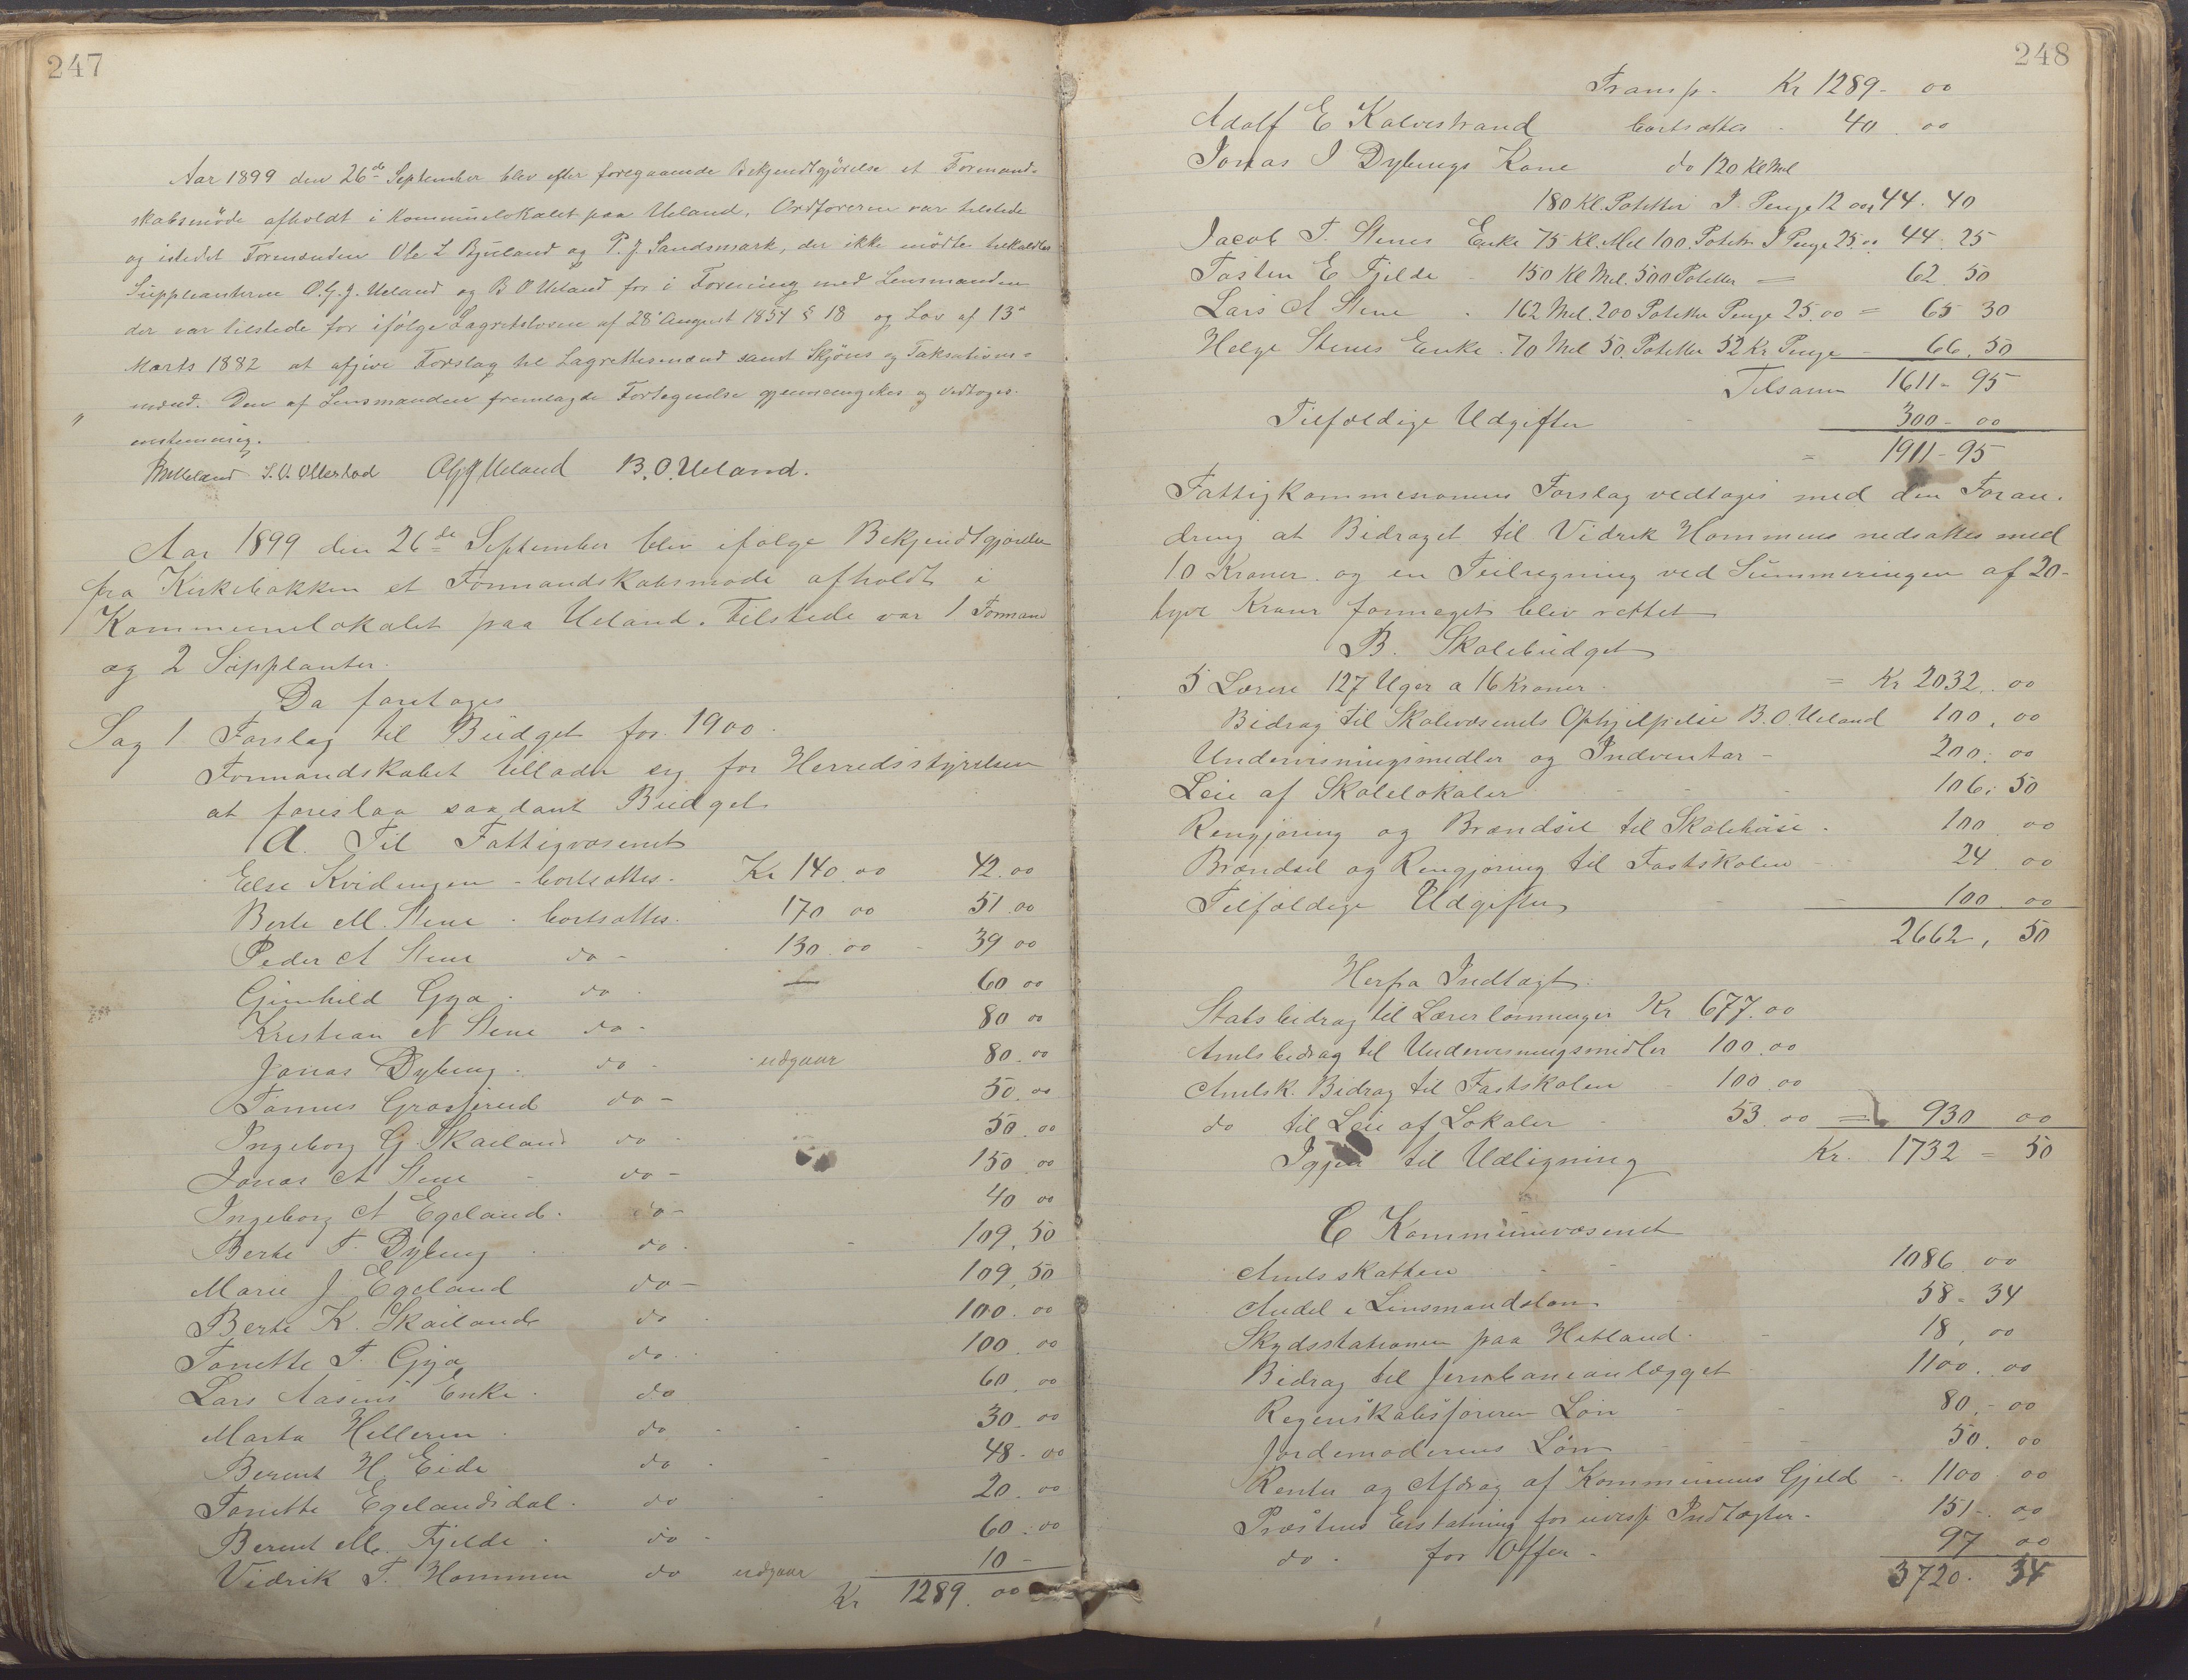 247
Aar 1899 den 26de September blev efter foregaaende Bekjendtgjörelse et Formand-
skabsmöde afholdt i Kommunelokalet paa Ueland. Ordföreren var tilstede
og istedet Formænden Ole L Bjuland og P. J. Sandsmark, der ikke mödte tilkaldtes
Suppleanterne O.G.J. Ueland og B O Ueland for i Forening med Lensmanden
der var tilstede for ifölge Lagretteloven af 28 August 1854 § 18 og Lov af 13de
Marts 1882 at afgive Forslag til Lagrettesmænd samt Skjöns og Taksations-
mænd. Den af Lensmanden fremlagde Fortegnelse gjennemgikes og vedtoges
enstemmig.
S. O. Ollestad OGJUeland B. O. Ueland.
Aar 1899 den 26de September blev ifølge Bekjendtgjørelse
fra Kirkebakken et Formandskabsmøde afholdt i
Kommunelokalet paa Ueland. Tilstede var 1 Formand
og 2 Supplanter.
Da foretoges
Sag 1 Forslag til Budget for 1900.
Formandskabet tillader sig for Herredsstyrelsen
at foreslaa saadant Budget
A. Til Fattigvæsenet
Else Kvidingen - bortsættes - Kr 140.00 42.00
Berte M. Stene - bortsættes. 170 00 51.00
Peder A Stene do - 130.00 - 39 00
Gunhild Gya. do - — 60 00
Kristian N Stene do - 80 00
Jonas Dybing. do - udgaar 80.00
Tønnes Grøsfjeld do - 50.00
Ingeborg G. Skailand do - 50.00
Jonas A Stene - do - 150.00
Ingeborg A Egeland. do - 40 00
Berte T. Dybing. do. - 109,50
Marie J Egeland do - 109,50
Berte K. Skailand do - 100.00
Tonette T. Gya do. 100.00
Lars Aasens Enke. do 60.00
Marta Helleren. do - 30.00
Berent H. Eide do. - 48-00
Tonette Egelandsdal. do - 20.00
Berent M. Fjelde. do - 60.00
Vidrik T. Hommen do udgaar 10 -
Kr 1289.00
248
Transp. Kr 1289- 00
Adolf E Kalvestrand bortsættes - 40.00
Jonas J Dybings Kone do 120 Kl Mel
180 Kl. Potetter I Penge 12 00 44. 40
Jacob T. Stenes Enke 75 Kl. Mel 100. Potett I Penge 25.00 44.25
Tosten E Fjelde - 150 Kl Mel. 500 Potetter = 62.50
Lars A Stene. 162 Mel. 200 Potetter Penge 25.00 = 65 30
Helge Stenes Enke. 70 Mel 50. Potetter 52 Kr Penge - 66.50
Tilsamm 1611- 95
Tilfældige Udgifter - 300- 00
= 1911-95
Fattigkommesionens Forslag vedtoges med den Foran-
dring at Bidraget til Vidrik Hommens nedsættes med
10 Kroner og en Feilregning ved Summeringen af 20-
tyve Kroner formeget blev rettet
B. Skolebudget
5 Lærere 127 Uger a 16 Kroner. = Kr 2032.00
Bidrag til Skolevæsenets Ophjelpelse B.O. Ueland 100.00
Undervisningsmidler og Indventar - 200.00
Leie af Skolelokaler - 106.50
Rengjøring og Brændsel til Skolehuse. 100 00
Brændsel og Rengjøring til Fastskolen - 24.00
Tilfældige Udgifter - 100 00
2662, 50
Herfra Indtægt.
Statsbidrag til Lærerlønninger Kr 677.00
Amtsbidrag til Undervisningsmidler 100.00
Amtsk. Bidrag til Fastskolen - 100.00
do til Leie af Lokaler - 53.00 = 930 00
Igjen til Udligning Kr. 1732 = 50
C Kommunevæsenet
Amtsskatten - 1086.00
Andel i Lensmandsløn 58- 34
Skydsstationen paa Hetland. - 18,00
Bidrag til Jernbaneanlægget - 1100.00
Regenskabsføreren Løn - 80,-00
Jordemoderens Løn - 50.00
Renter og Afdrag af Kommunens Gjeld - 1100.00
Præstens Erstatning for uvisse Indtægter. 151-.00
do. for Offer - 97 00
3720. 34